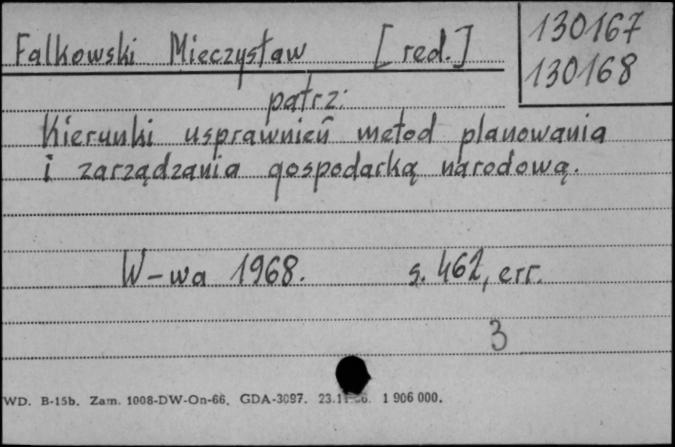 Falkowski Mieczysław [red.]
130167
130168
patrz:
Kierunki usprawnień metod planowania
i zarządzania gospodarką narodową.
W-wa 1968. s. 462, err.
3
WD. B-15b. Zam. 1008-DW-On-66. GDA-3097. 1 906 000.